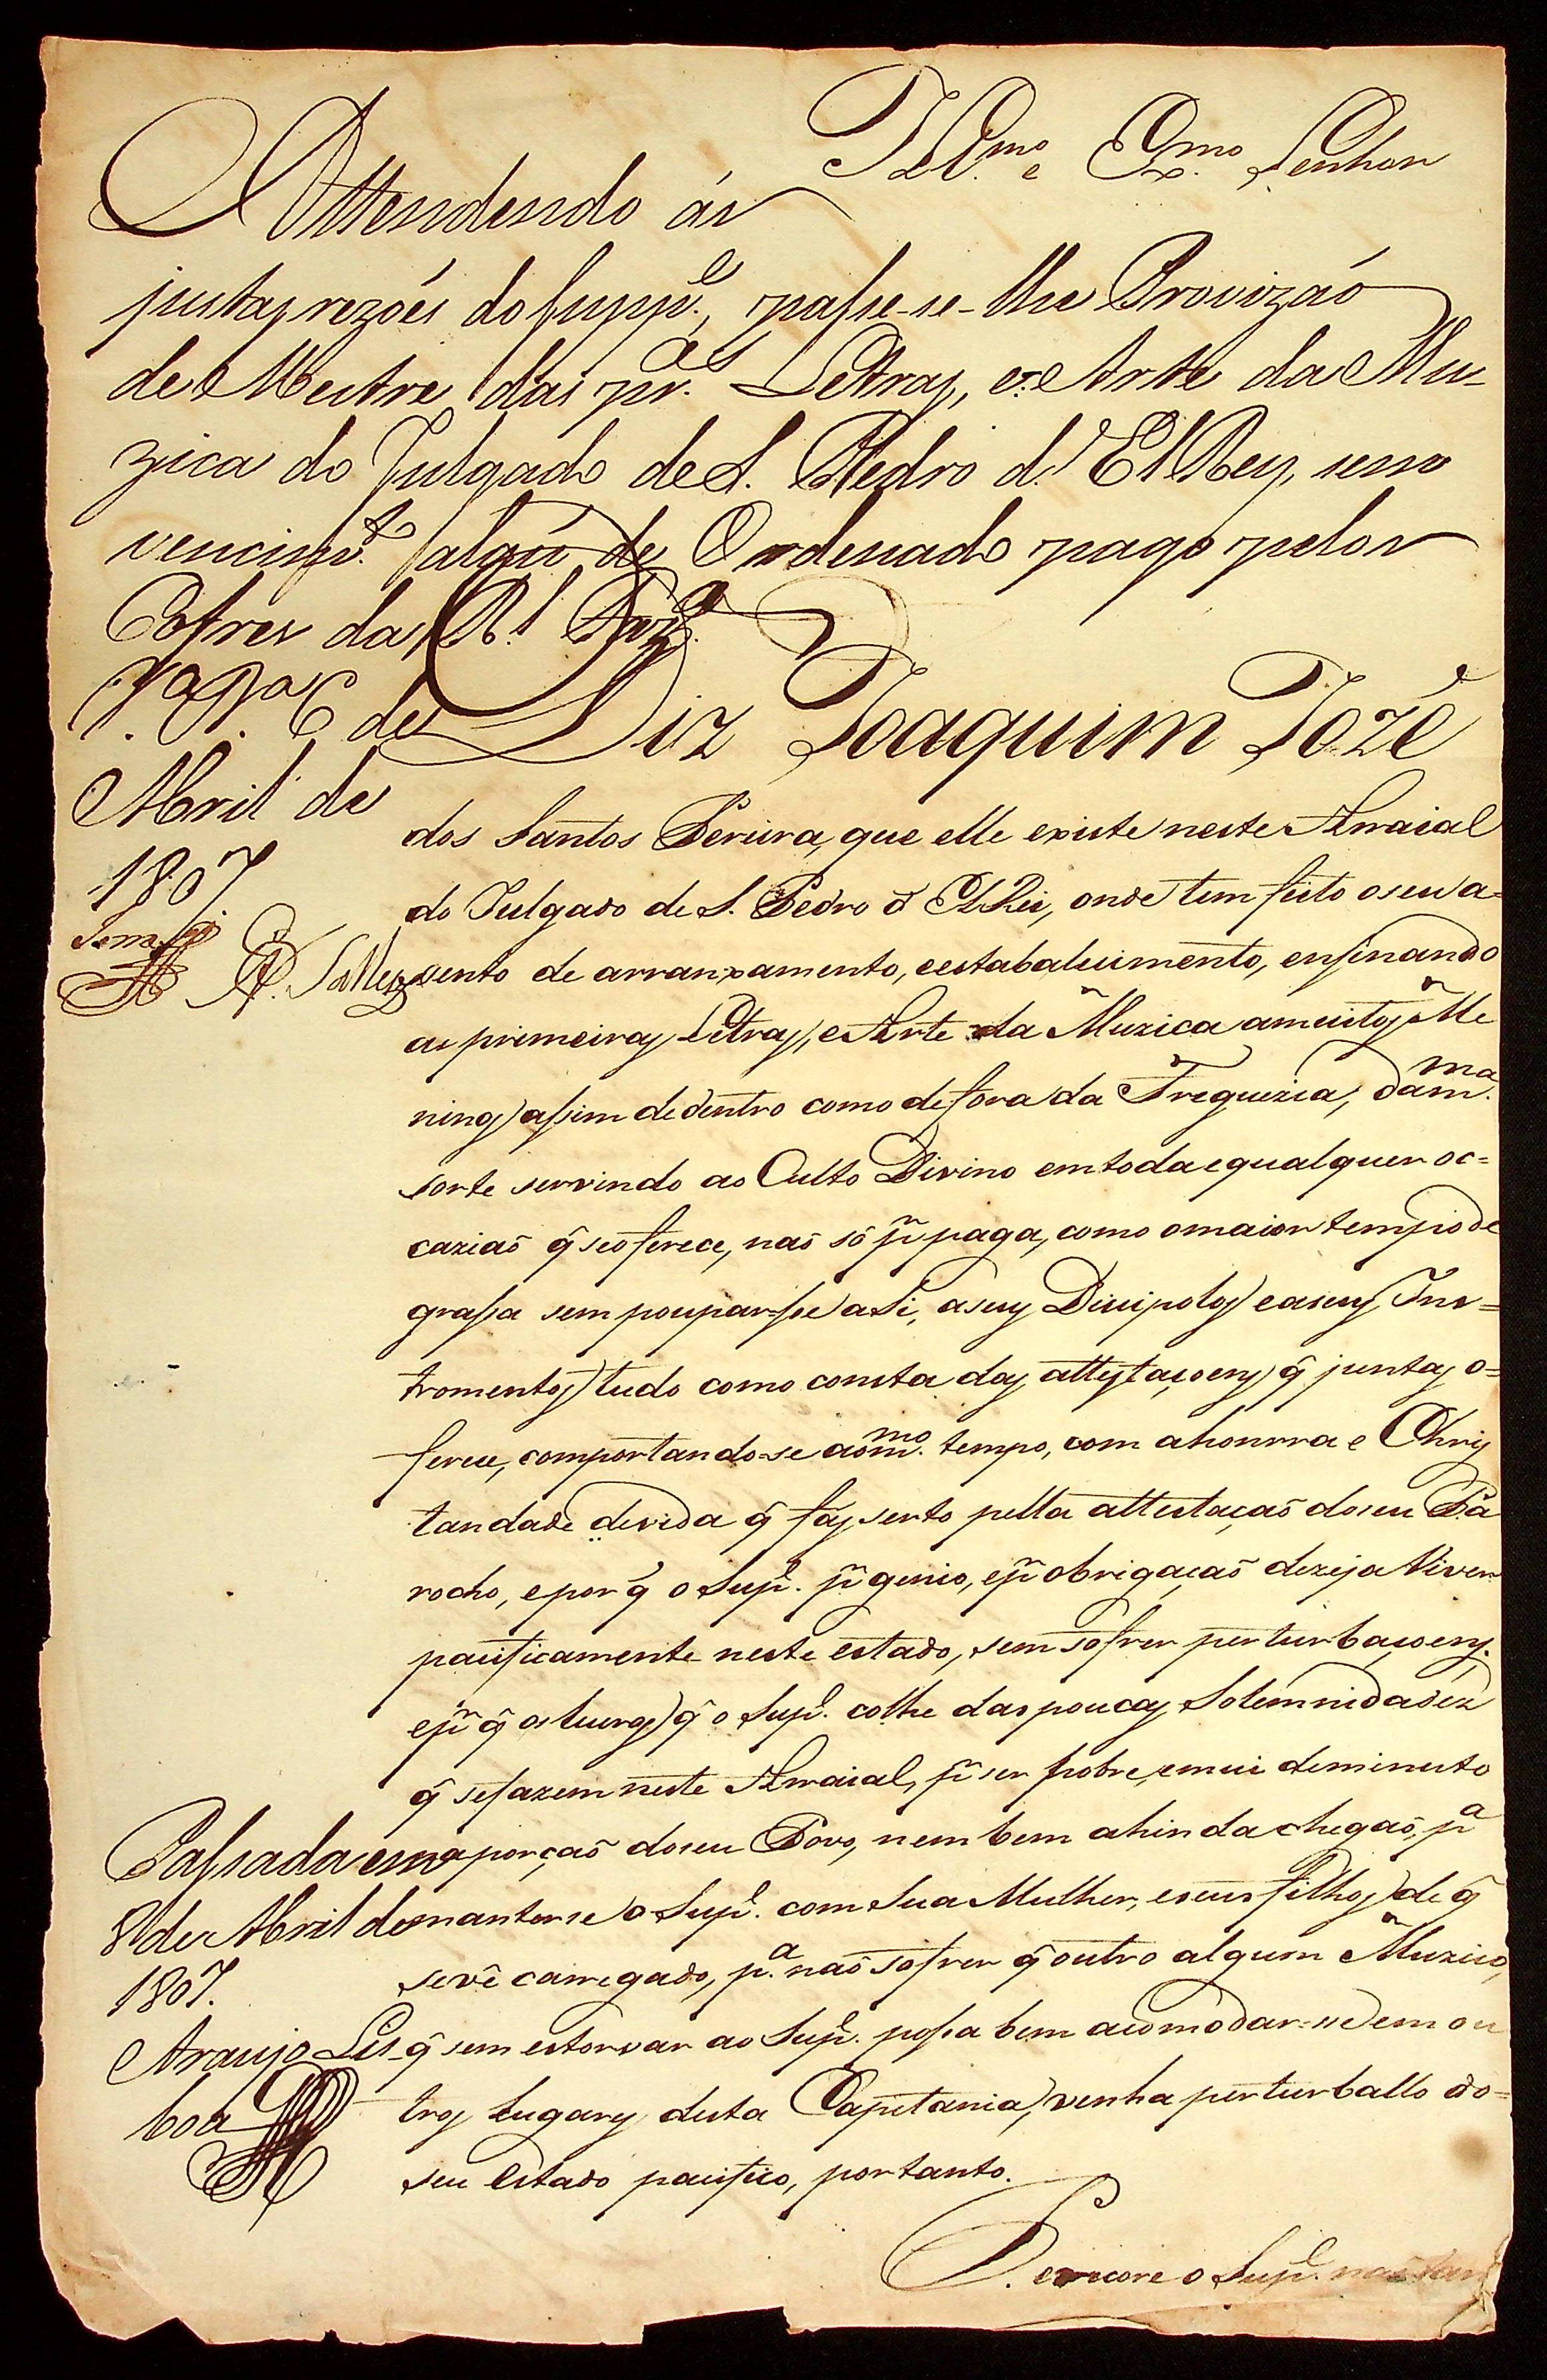 Ill.mo e Ex.mo Senhor
Attendendo ás
justas rezões do supp.e, passe-se-lhe Provizão
de Mestre das pr.as Letras, e Arte da Mu-
zica do Julgado de S. Pedro d'El Rey, sem
vencim.to algũ de Ordenado pago pelos
Cofres da R.l Faz.a
de
Abril de
1807
Diz Joaquim Jozé
dos Santos Pereira, que elle existe neste Arraial
do Julgado de S. Pedro d ElRei, onde tem feito o seu a=
sento de arranxamento, e estabalecimento, ensinando
as primeiras Letras, e Arte da Muzica a muitos Me
ninos assim de dentro como de fora da Freguezia, da m.ma
sorte servindo ao Culto Divino em toda e qualquer oc=
caziaõ q̃ se oferece, naõ só p.r paga, como o maior tempo de
grassa sem poupar-sse a Si, a seus Dicipolos e a seus Ins=
tromentos tudo como consta das attestaçoens q̃ juntas o=
ferece, comportando-se ao m.mo tempo, com a honrra e Chris
tandade devida q̃ fas serto pella attestaçaõ do seu Pa
rocho, e por q̃ o Sup.e p.r genio, e p.r obrigaçaõ dezeja Viver
pacificamente neste estado, sem sofrer perturbaçoens.
e p.r q̃ os lucros q̃ o Sup.e colhe das poucas Solemnidadez
q̃ se fazem neste Arraial, p.r ser pobre, e mui deminuto
a porçaõ do seu Povo, nem bem ahinda chegaõ, p.a
manterse o Sup.e com Sua Mulher, e seus filhos de q̃
se vê carregado, p.a naõ sofrer q̃ outro algum Muzico,
q̃ sem estorvar ao Sup.e possa bem acomodar-se em ou
tros Lugares desta Capitania, venha perturballo do=
seu Estado pacifico, portanto.
Passada em
8 de Abril de
1807.
Araujo Lis-
boa
P. e recore o Sup.e